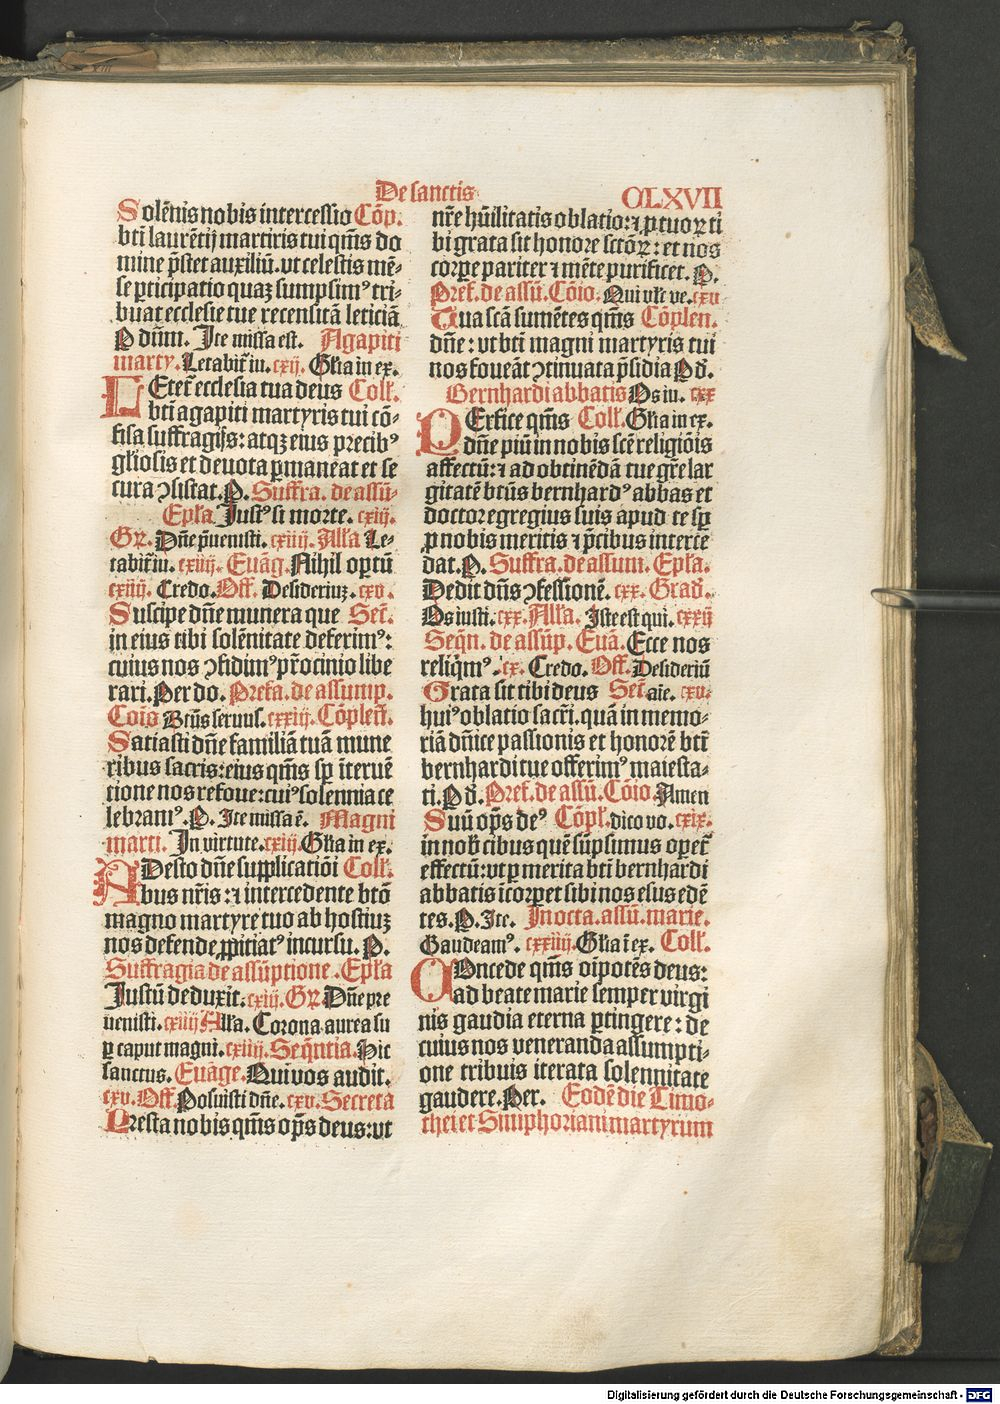 De sanctis
CLXVII
Solēnis nobis intercessio Cōp.
bti laurētij martiris tui qm̄s do
mine p̄stet auxiliū. vt celestis mē-
se ꝑticipatio quaꝫ sumpsimꝰ tri-
buat ecclesie tue recensitā leticiā
P dn̄m. Ite missa est. Agapiti
marty. Letabit̄ iu. cxij. Gl̄ia in ex.
LEtet̄ ecclesia tua deus Coll̄.
bti agapiti martyris tui cō-
fisa suffragijs: atqꝫ eius precibꝰ
gl̄iosis et deuota ꝑmaneat et se
cura ꝯsistat. P. Suffra. de assū-
Epl̄a Justꝰ si morte. cxiij.
Gꝛ. Dn̄e p̄uenisti. cxiiij. All̄a Le-
tabit̄ iu. cxiiij. Euāg. Nihil optū
cxiiij. Credo. Off. Desideriuꝫ. cxv.
Suscipe dn̄e munera que Set̄.
in eius tibi solēnitate deferimꝰ:
cuius nos ꝯfidimꝰ pr̄ocinio libe
rari. Per do. Prefa. de assump.
Cōio Btūs seruus. cxxiij. Cōplen̄.
Satiasti dn̄e familiā tuā mune
ribus sacris: eius qm̄s sp̄ īteruē
tione nos refoue: cuiꝰ solennia ce
lebramꝰ. P. Ite missa ē. Magni
marti. In virtute. cxiij. Gl̄ia in ex.
ADesto dn̄e supplicatiōi Coll̄.
bus nr̄is: ⁊ intercedente btō
magno martyre tuo ab hostiuꝫ
nos defende ꝓpitiatꝰ incursu. P.
Suffragia de assūptione. Epl̄a
Justū deduxit. cxiij. Gꝛ Dn̄e pre
uenisti. cxiiij All̄a. Corona aurea su
ꝑ caput magni. cxiiij. Seq̄ntia. Hic
sanctus. Euāge. Qui vos audit.
cxv. Off. Posuisti dn̄e. cxv. Secreta
Presta nobis qm̄s op̄s deus: vt
nr̄e hūilitatis oblatio: ⁊ ꝓ tuoꝝ ti
bi grata sit honore sctōꝝ: et nos
corpe pariter ⁊ mēte purificet. P.
Pref. de assū. Cōio. Qui vlt̄ ve. cxv
Tua scā sumētes qm̄s Cōplen.
dn̄e: vt bti magni martyris tui
nos foueāt ꝯtinuata p̄sidia Pd̄.
Bernhardi abbatis Os iu. cxx
PErfice qm̄s Coll̄. Gl̄ia in ex.
dn̄e piū in nobis scē religiōis
affectū: ⁊ ad obtinēdā tue gr̄e lar
gitatē btūs bernhardꝰ abbas et
doctor egregius suis apud te sp̄
ꝓ nobis meritis ⁊ p̄cibus interce
dat. P. Suffra. de assum. Epl̄a.
Dedit dn̄s ꝯfessionē. cxx. Grad̄.
Os iusti. cxx. All̄a. Iste est qui. cxxij
Seq̄n. de assūp. Euā. Ecce nos
reliq̄mꝰ. cx. Credo. Off. Desideriū
Grata sit tibi deus Set̄ aīe. cxv.
huiꝰ oblatio sacri. quā in memo-
riā dn̄ice passionis et honorē bti
bernhardi tue offerimꝰ maiesta-
ti. Pd̄. Pref. de assū. Cōio. Amen
Suū op̄s deꝰ Cōpl̄. dico vo. cxix.
in nob̄ cibus quē sūpsimus oper̄
effectū: vt ꝑ merita bti bernhardi
abbatis īcorpet sibi nos esus edē
tes. P. Ite. In octa. assū. marie.
Gaudeamꝰ. cxxiiij. Gl̄ia ī ex. Coll̄.
COncede qm̄s oīpotēs deus:
ad beate marie semper virgi
nis gaudia eterna ꝑtingere: de
cuius nos veneranda assumpti-
one tribuis iterata solennitate
gaudere. Per. Eodē die Timo-
thei et Simphoriani martyrum
Digitalisierung gefördert durch die Deutsche Forschungsgemeinschaft - DFG